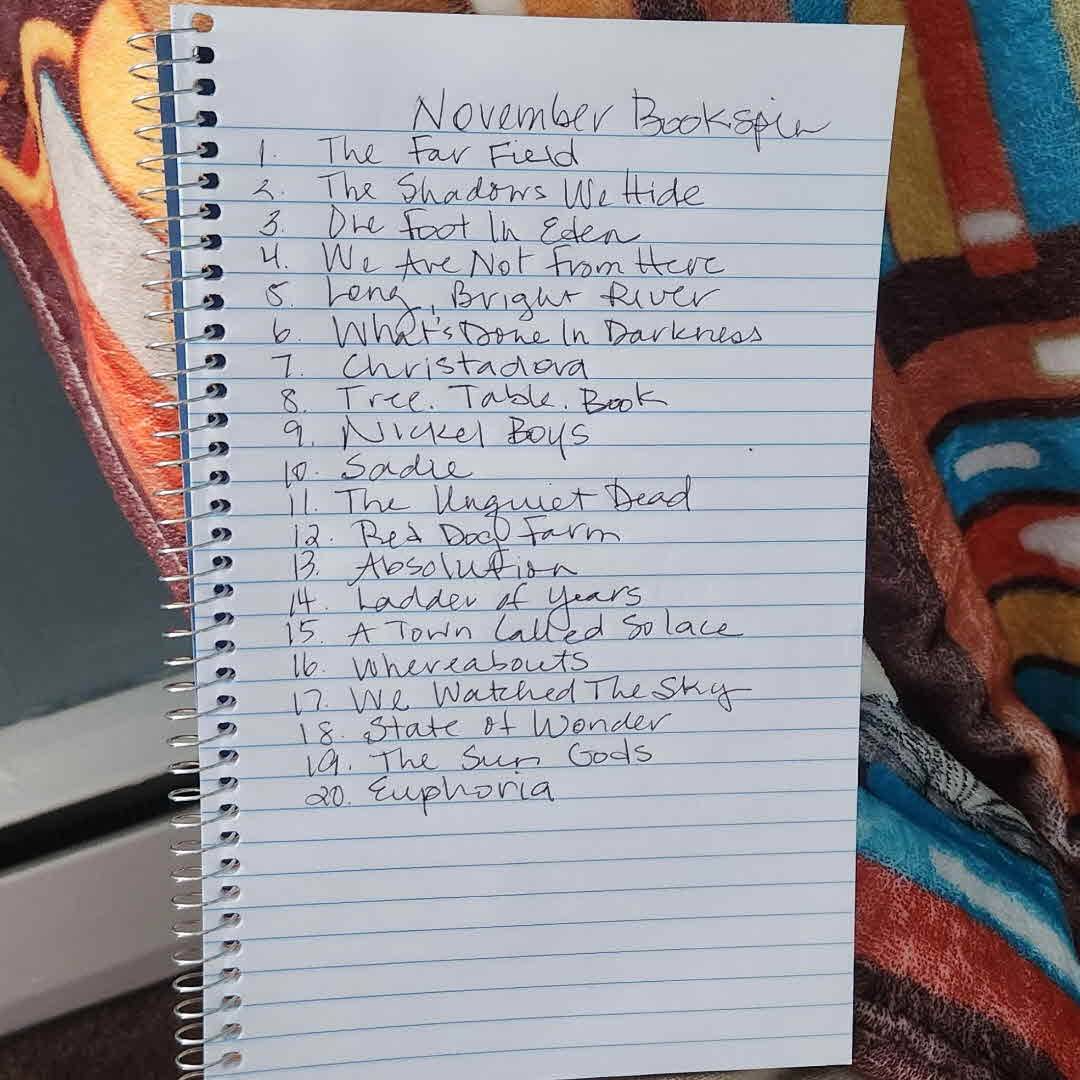 November Bookspin
1. The Far Field
2. The Shadows We Hide
3. One Foot In Eden
4. We Are Not From Here
5. Long, Bright River
6. What's Done In Darkness
7. Christadora
8. Tree. Table. Book
9. Nickel Boys
10. Sadie
11. The Unquiet Dead
12. Red Dog Farm
13. Absolution
14. Ladder of Years
15. A Town Called Solace
16. Whereabouts
17. We Watched The Sky
18. State of Wonder
19. The Sun Gods
20. Euphoria